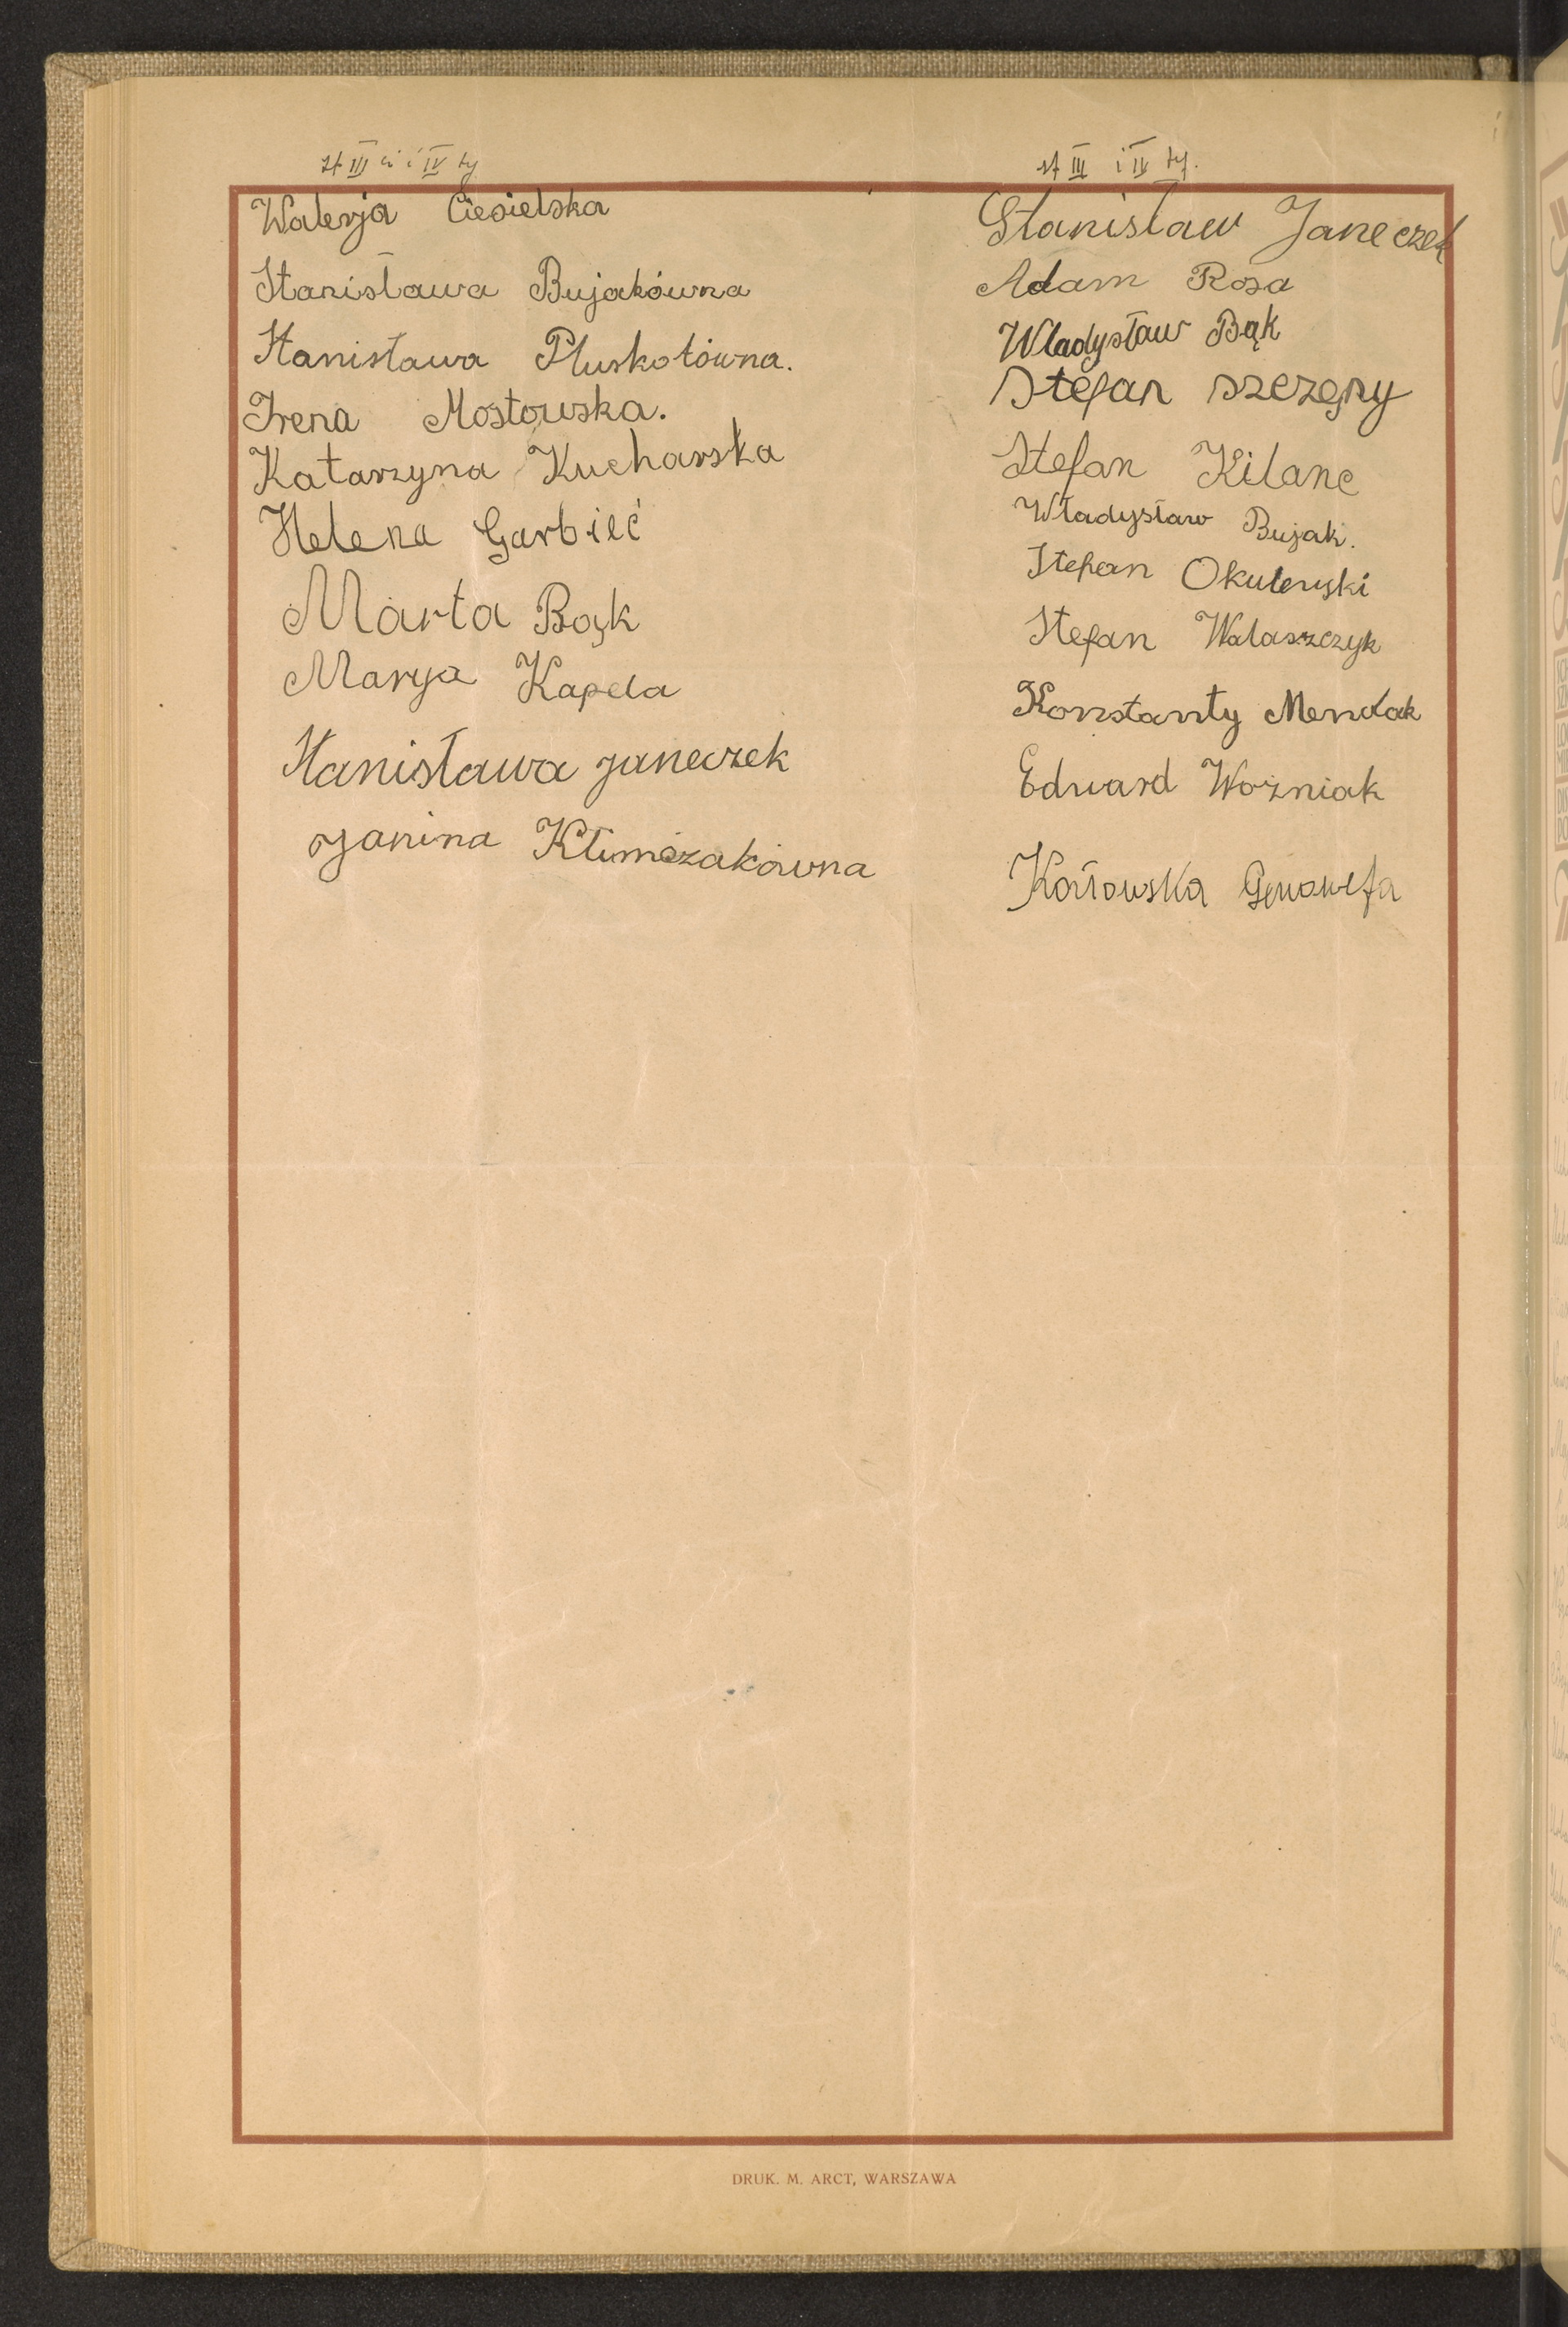 st III ci i IV ty
Walerja Ciesielska
Stanisława Bujakówna
Stanisława Pluskotówna.
Irena Mostowska.
Katarzyna Kucharska
Helena Garbieć
Marta Bąk
Marya Kapela
Stanisława Janeczek
Janina Klimczakówna
st III i IV ty.
Stanisław Janeczek
Adam Rosa
Władysław Bąk
Stefan Szczęsny
Stefan Kilanc
Władysław Bujak.
Stefan Okulewski
Stefan Walaszczyk
Konstanty Mendak
Edward Woźniak
Genowefa
DRUK. M. ARCT, WARSZAWA